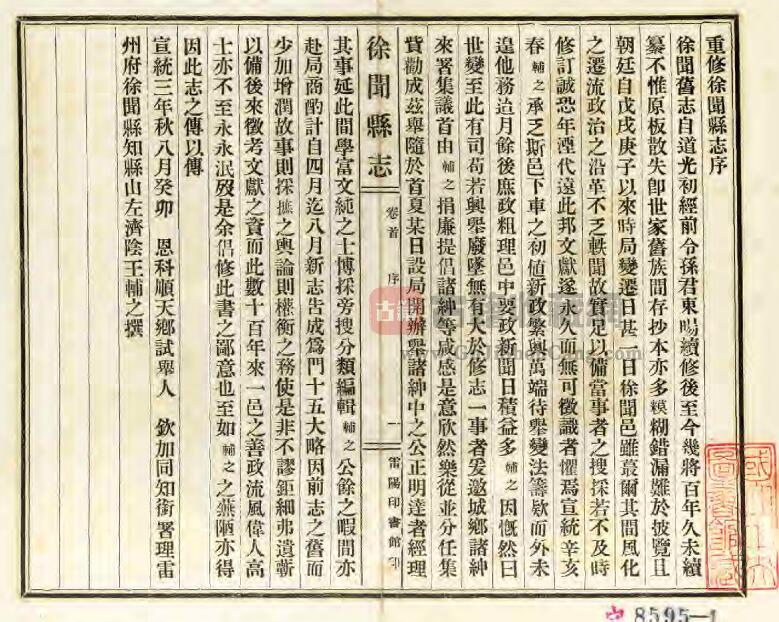 重修徐聞縣志序
徐聞舊志自道光初經前令孫君東暘續修後至今幾將百年久未續
纂不惟原板散失卽世家舊族間存抄本亦多模糊錯漏難於披覽且
朝廷自戊戌庚子以來時局變遷日甚一日徐聞邑雖蕞爾其間風化
之遷流政治之沿革不乏軼聞故實足以備當事者之搜採若不及時
修訂誠恐年湮代遠此邦文獻遂永久而無可徵識者懼焉宣統辛亥
春輔之承乏斯邑下車之初値新政繁興萬端待舉變法籌欵而外未
遑他務迨月餘後庶政粗理邑中要政新聞日積益多輔之因慨然曰
世變至此有司苟若興舉廢墜無有大於修志一事者爰邀城鄉諸紳
來署集議首由輔之捐廉提倡諸紳等咸感是意欣然樂從並分任集
貲勸成茲舉隨於首夏某日設局開辦舉諸紳中之公正明達者經理
徐聞縣志
卷首
序
一
雷陽印書館印
其事延此間學富文純之士博採旁搜分類編輯輔之公餘之暇間亦
赴局商酌計自四月迄八月新志告成爲門十五大略因前志之舊而
少加增潤故事則採摭之輿論則權衡之務使是非不謬鉅細弗遺蘄
以備後來徵考文獻之資而此數十百年來一邑之善政流風偉人高
士亦不至永永泯歿是余倡修此書之鄙意也至如輔之之蕪陋亦得
因此志之傳以傳
宣統三年秋八月癸卯 恩科順天鄉試舉人 欽加同知銜署理雷
州府徐聞縣知縣山左濟陰王輔之撰
8595-1